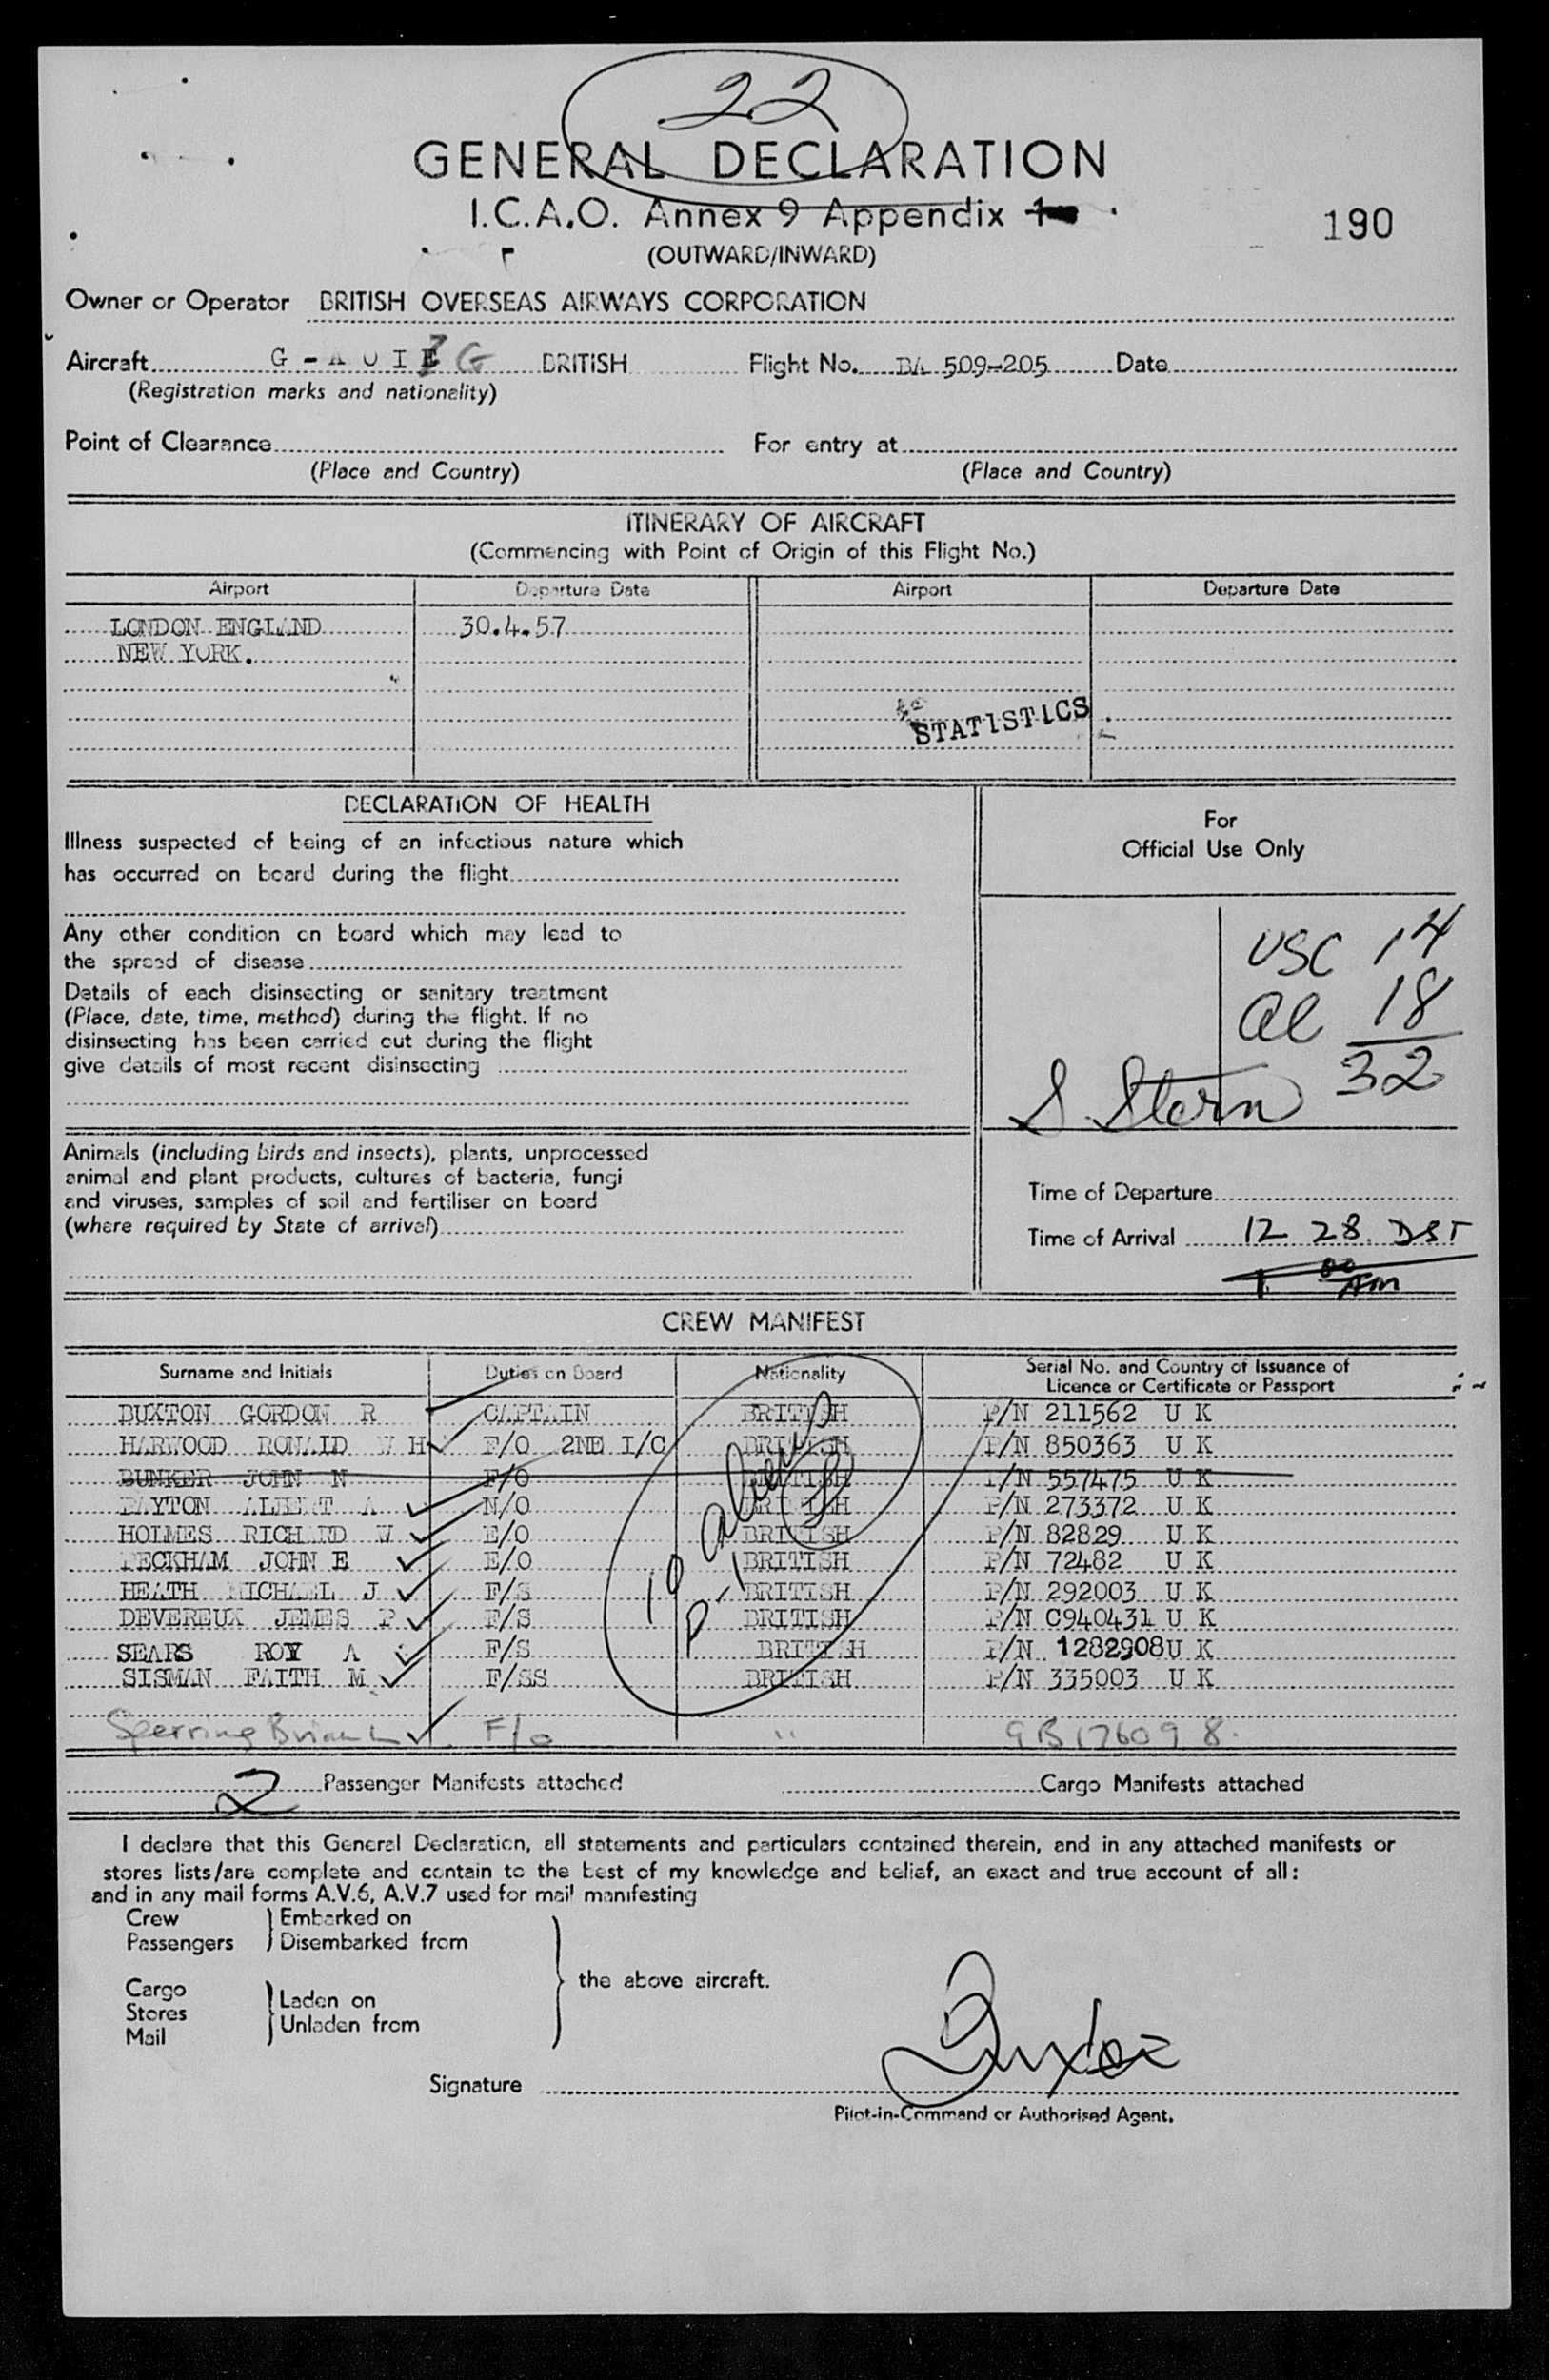 22
GENERAL DECLARATION
I.C.A.O. Annex 9 Appendix 1
190
(OUTWARD/INWARD)
Owner or Operator BRITISH OVERSEAS AIRWAYS CORPORATION
Aircraft G - A O I G BRITISH Flight No. BA 509-205 Date
(Registration marks and nationality)
Point of Clearance For entry at
(Place and Country) (Place and Country)
ITINERARY OF AIRCRAFT
(Commencing with Point of Origin of this Flight No.)
Airport Departure Date Airport Departure Date
LONDON ENGLAND 30.4.57
NEW YORK.
STATISTICS
DECLARATION OF HEALTH
Illness suspected of being of an infectious nature which
has occurred on board during the flight
Any other condition on board which may lead to
the spread of disease
Details of each disinsecting or sanitary treatment
(Place, date, time, method) during the flight. If no
disinsecting has been carried out during the flight
give details of most recent disinsecting
For
Official Use Only
USC 14
al 18
32
S. Stern
Animals (including birds and insects), plants, unprocessed
animal and plant products, cultures of bacteria, fungi
and viruses, samples of soil and fertiliser on board
(where required by State of arrival)
Time of Departure
Time of Arrival 12 28 DST
1 00 Am
CREW MANIFEST
Surname and Initials Duties on Board Nationality Serial No. and Country of Issuance of
Licence or Certificate or Passport
BUXTON GORDON R CAPTAIN BRITISH P/N 211562 U K
HARWOOD RONALD W H F/O 2ND I/C BRITISH P/N 850363 U K
BUNKER JOHN N F/O BRITISH P/N 557475 U K
PAYTON ALBERT A N/O BRITISH P/N 273372 U K
HOLMES RICHARD W E/O BRITISH P/N 82829 U K
PECKHAM JOHN E E/O BRITISH P/N 72482 U K
HEATH MICHAEL J F/S BRITISH P/N 292003 U K
DEVEREUX JEMES P F/S BRITISH P/N C940431 U K
SEARS ROY A F/S BRITISH P/N 1282908 U K
SISMAN FAITH M F/SS BRITISH P/N 335003 U K
Sperring Brian L F/O " GB176098.
10 aliens
2 Passenger Manifests attached Cargo Manifests attached
I declare that this General Declaration, all statements and particulars contained therein, and in any attached manifests or
stores lists/are complete and contain to the best of my knowledge and belief, an exact and true account of all:
and in any mail forms A.V.6, A.V.7 used for mail manifesting
Crew Embarked on
Passengers Disembarked from
the above aircraft.
Cargo
Stores Laden on
Mail Unladen from
Buxton
Signature
Pilot-in-Command or Authorised Agent.